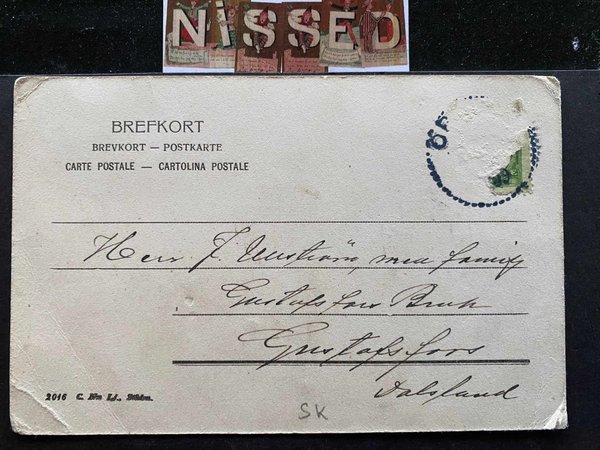 NISSED
BREFKORT
BREVKORT — POSTKARTE
CARTE POSTALE — CARTOLINA POSTALE
Herr J. med familj
Gustafsfors Bruk
Gustafsfors
Dalsland
2016
SK